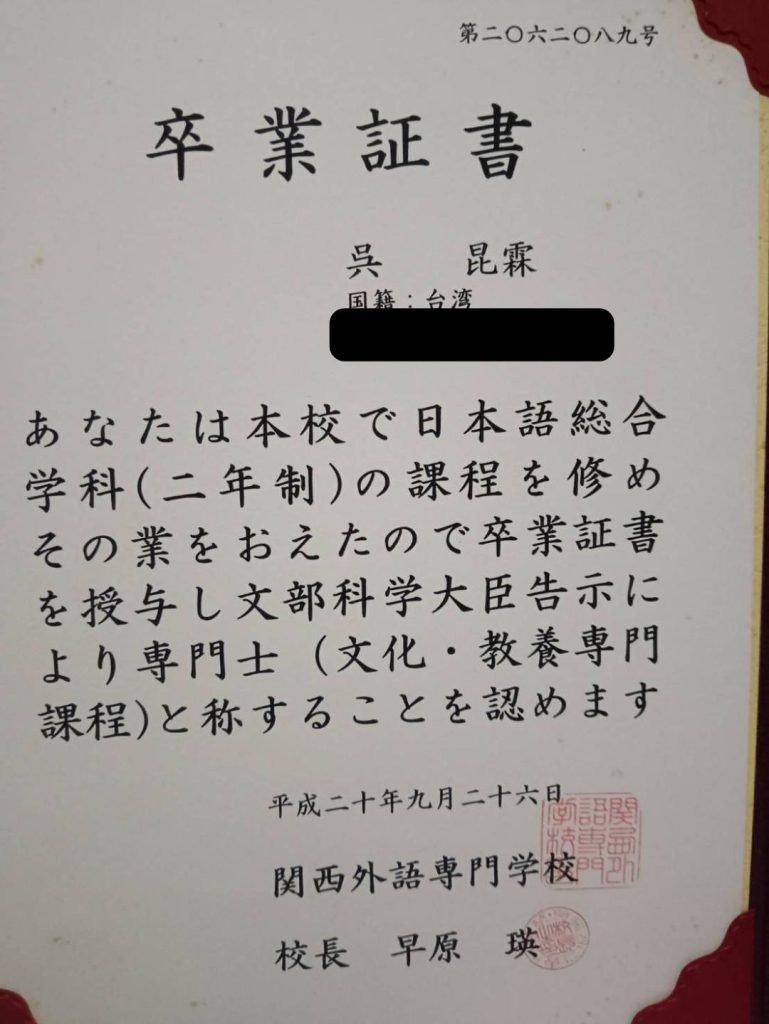 第二〇六二〇八九号
卒業証書
呉 昆霖
国籍：台湾
あなたは本校で日本語総合
学科(二年制)の課程を修め
その業をおえたので卒業証書
を授与し文部科学大臣告示に
より専門士（文化・教養専門
課程)と称することを認めます
平成二十年九月二十六日
関西外語専門学校
校長 早原 瑛